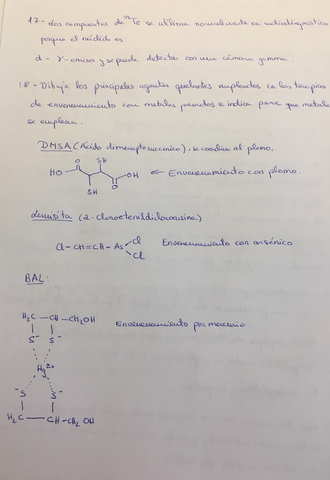 17.- Los compuestos de ⁹⁹ᵐTc se utilizan normalmente en radiodiagnóstico
porque el núclido es:
d - γ-emisor y se puede detectar con una cámara gamma.
18.- Dibuja los principales agentes quelantes empleados en las terapias
de envenenamiento con metales pesados e indica para que metales
se emplean.
DMSA (Ácido dimercaptosuccínico), se coordina al plomo.
HO O SH O OH SH ← Envenenamiento con plomo.
Lewisita (2-cloroetenildicloroarsina)
Cl-CH=CH-As Cl Cl Envenenamiento con arsénico
BAL:
H₂C - CH - CH₂OH Envenenamiento por mercurio
S⁻ S⁻
Hg²⁺
⁻S S⁻
H₂C - CH - CH₂ OH